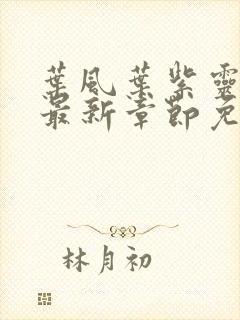 葉風葉紫靈
最新章節免
林月初